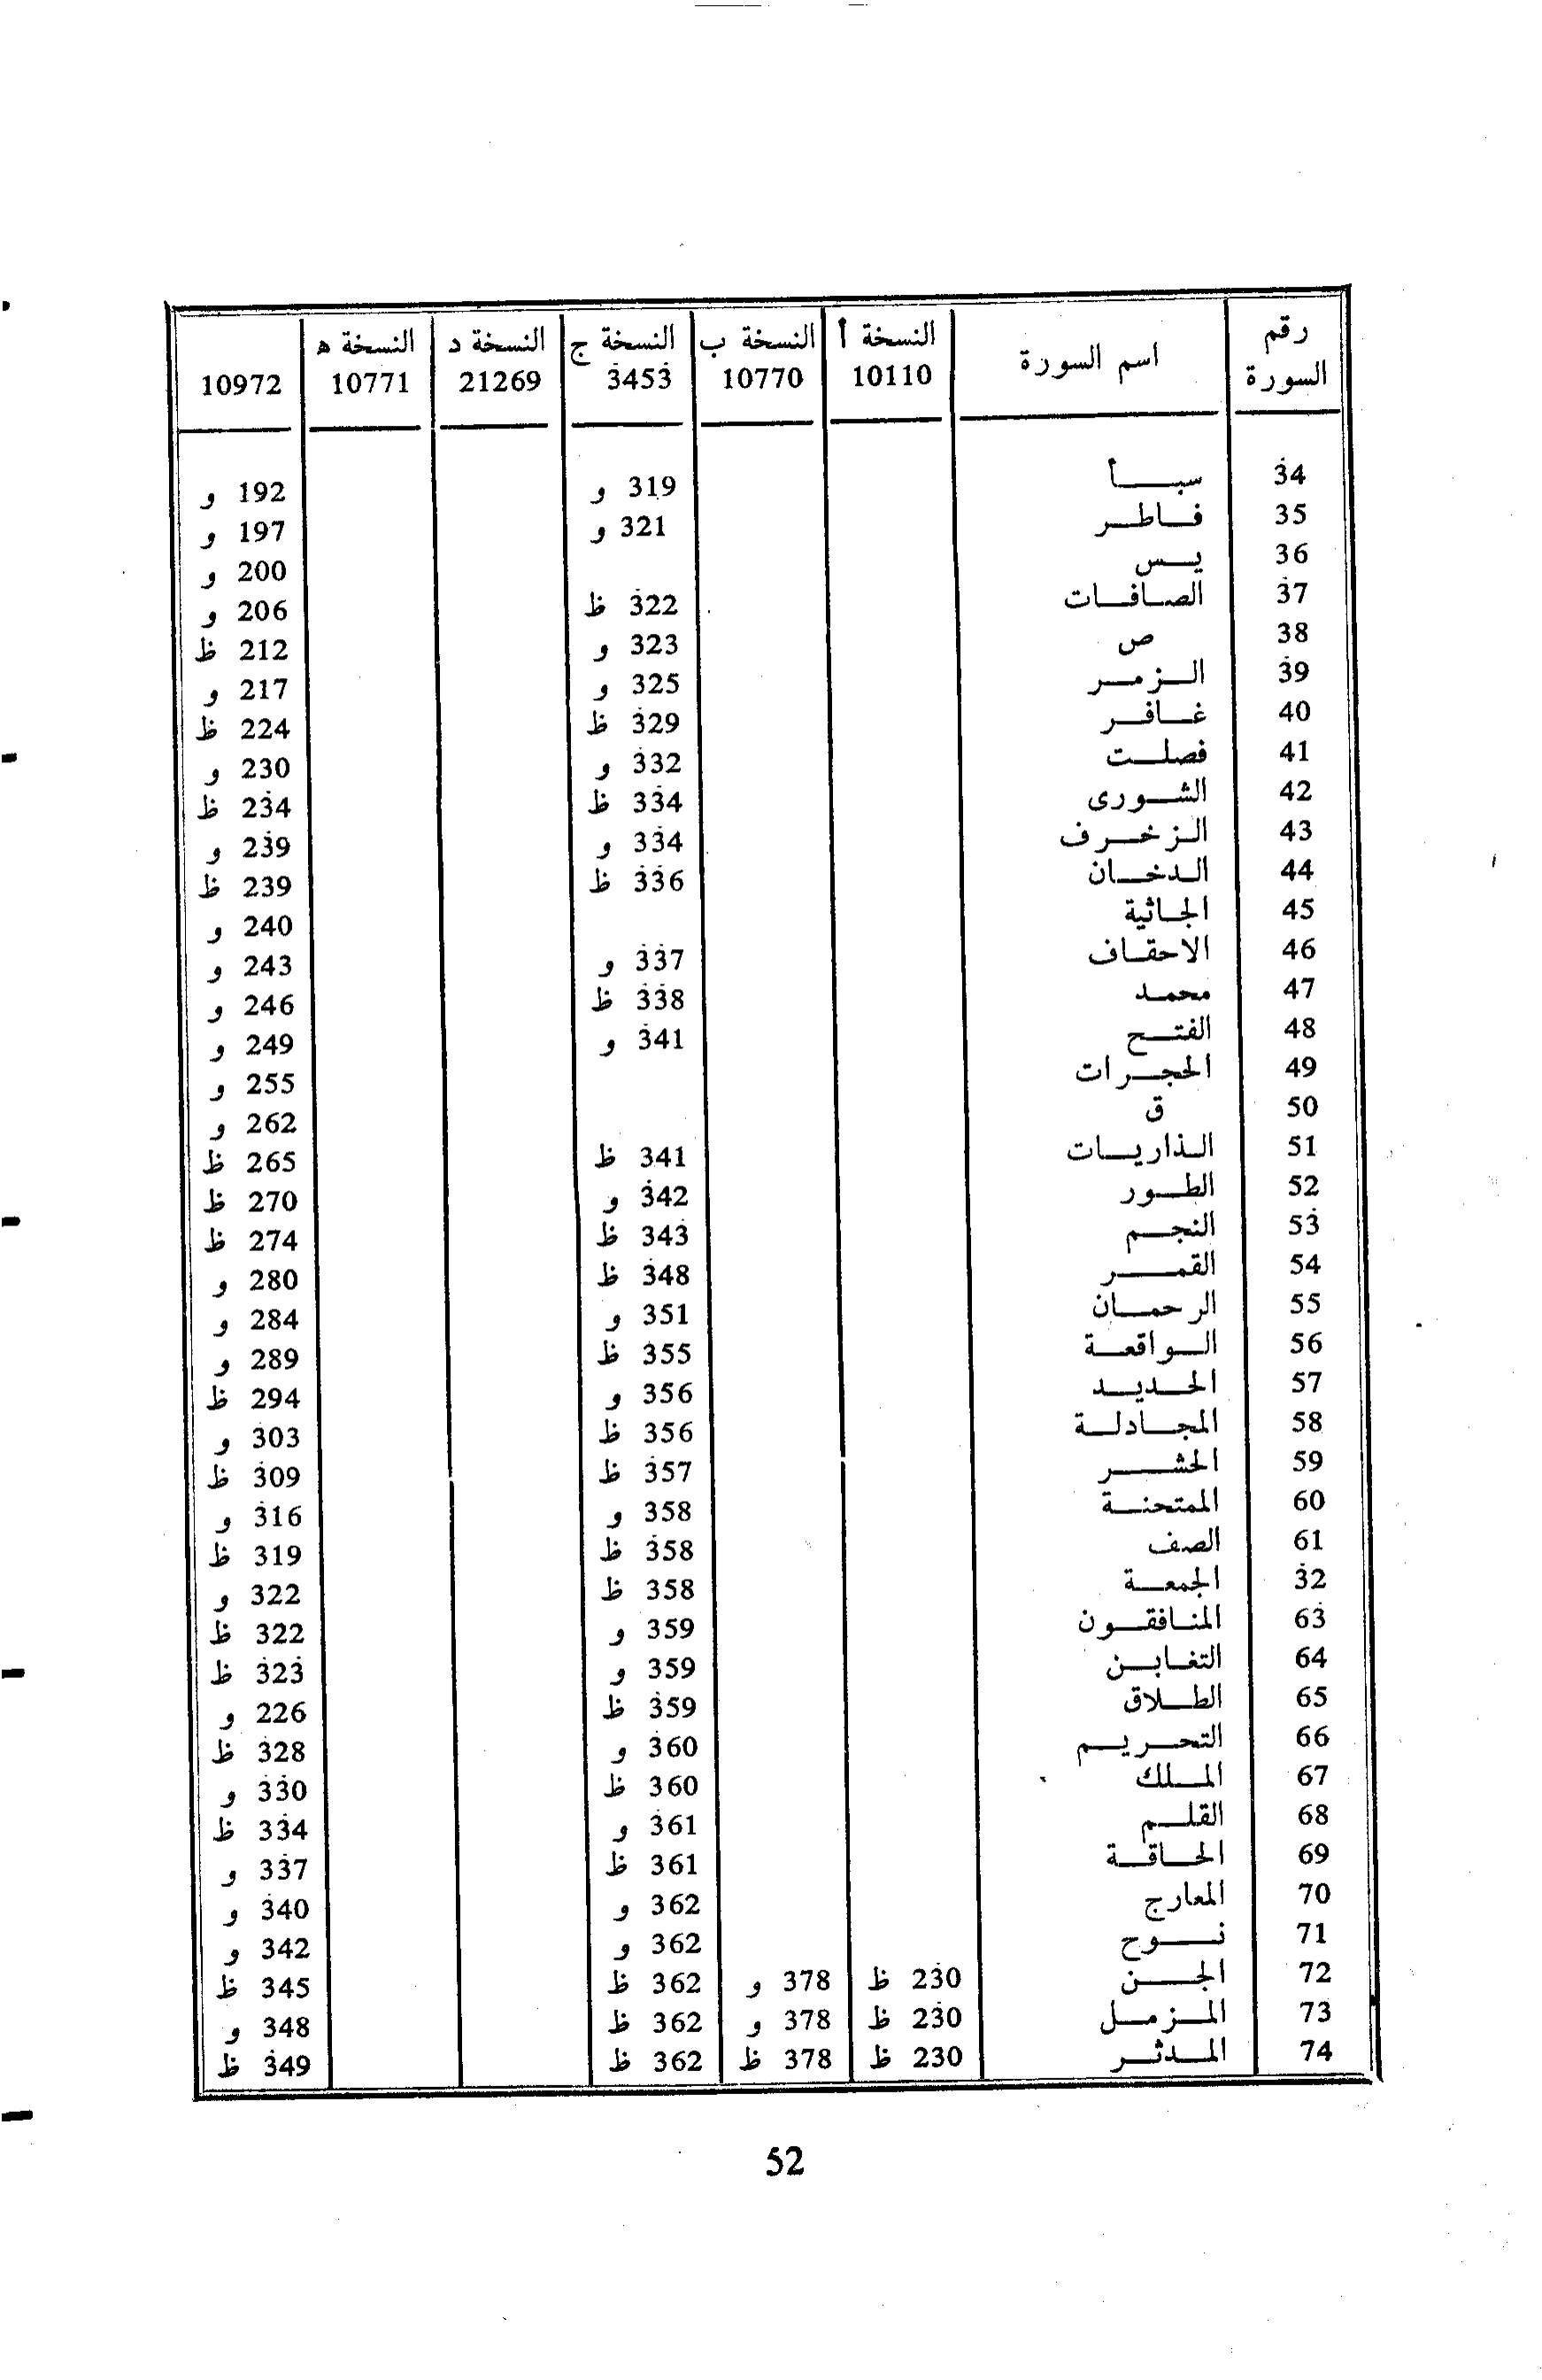 رقم السورة | اسم السورة | النسخة أ 10110 | النسخة ب 10770 | النسخة ج 3453 | النسخة د 21269 | النسخة ه 10771 | 10972
34 | سبأ | | | 319 و | | | 192 و
35 | فاطر | | | 321 و | | | 197 و
36 | يس | | | | | | 200 و
37 | الصافات | | | 322 ظ | | | 206 و
38 | ص | | | 323 و | | | 212 ظ
39 | الزمر | | | 325 و | | | 217 و
40 | غافر | | | 329 ظ | | | 224 ظ
41 | فصلت | | | 332 و | | | 230 و
42 | الشورى | | | 334 ظ | | | 234 ظ
43 | الزخرف | | | 334 و | | | 239 و
44 | الدخان | | | 336 ظ | | | 239 ظ
45 | الجاثية | | | | | | 240 و
46 | الاحقاف | | | 337 و | | | 243 و
47 | محمد | | | 338 ظ | | | 246 و
48 | الفتح | | | 341 و | | | 249 و
49 | الحجرات | | | | | | 255 و
50 | ق | | | | | | 262 و
51 | الذاريات | | | 341 ظ | | | 265 ظ
52 | الطور | | | 342 و | | | 270 ظ
53 | النجم | | | 343 ظ | | | 274 ظ
54 | القمر | | | 348 ظ | | | 280 و
55 | الرحمان | | | 351 و | | | 284 و
56 | الواقعة | | | 355 ظ | | | 289 و
57 | الحديد | | | 356 و | | | 294 ظ
58 | المجادلة | | | 356 ظ | | | 303 و
59 | الحشر | | | 357 ظ | | | 309 ظ
60 | الممتحنة | | | 358 و | | | 316 و
61 | الصف | | | 358 ظ | | | 319 ظ
32 | الجمعة | | | 358 ظ | | | 322 و
63 | المنافقون | | | 359 و | | | 322 ظ
64 | التغابن | | | 359 و | | | 323 ظ
65 | الطلاق | | | 359 ظ | | | 226 و
66 | التحريم | | | 360 و | | | 328 ظ
67 | الملك | | | 360 ظ | | | 330 و
68 | القلم | | | 361 و | | | 334 ظ
69 | الحاقة | | | 361 ظ | | | 337 و
70 | المعارج | | | 362 و | | | 340 و
71 | نوح | | | 362 و | | | 342 و
72 | الجن | 230 ظ | 378 و | 362 ظ | | | 345 ظ
73 | المزمل | 230 ظ | 378 و | 362 ظ | | | 348 و
74 | المدثر | 230 ظ | 378 ظ | 362 ظ | | | 349 ظ
52